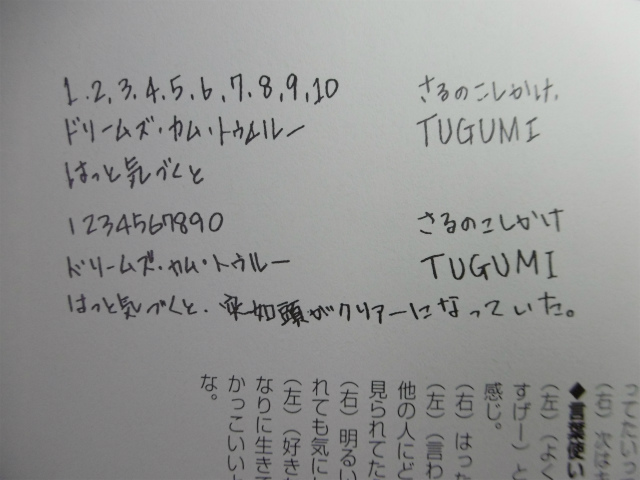 1.2.3.4.5.6.7.8.9.10
ドリームズ・カム・トゥルー
はっと気づくと
さるのこしかけ.
TUGUMI
1234567890
ドリームズ・カム・トゥルー
はっと気づくと、突如頭がクリアーになっていた。
さるのこしかけ
TUGUMI
ってたいっ
（右）次は
◆言葉使い
（左）（よく
すげー）と
感じ。
（右）はった
（左）（言わ
他の人にど
見られてた
（右）明るい
れても気にし
（左）（好き
なりに生き
かっこいい
な。